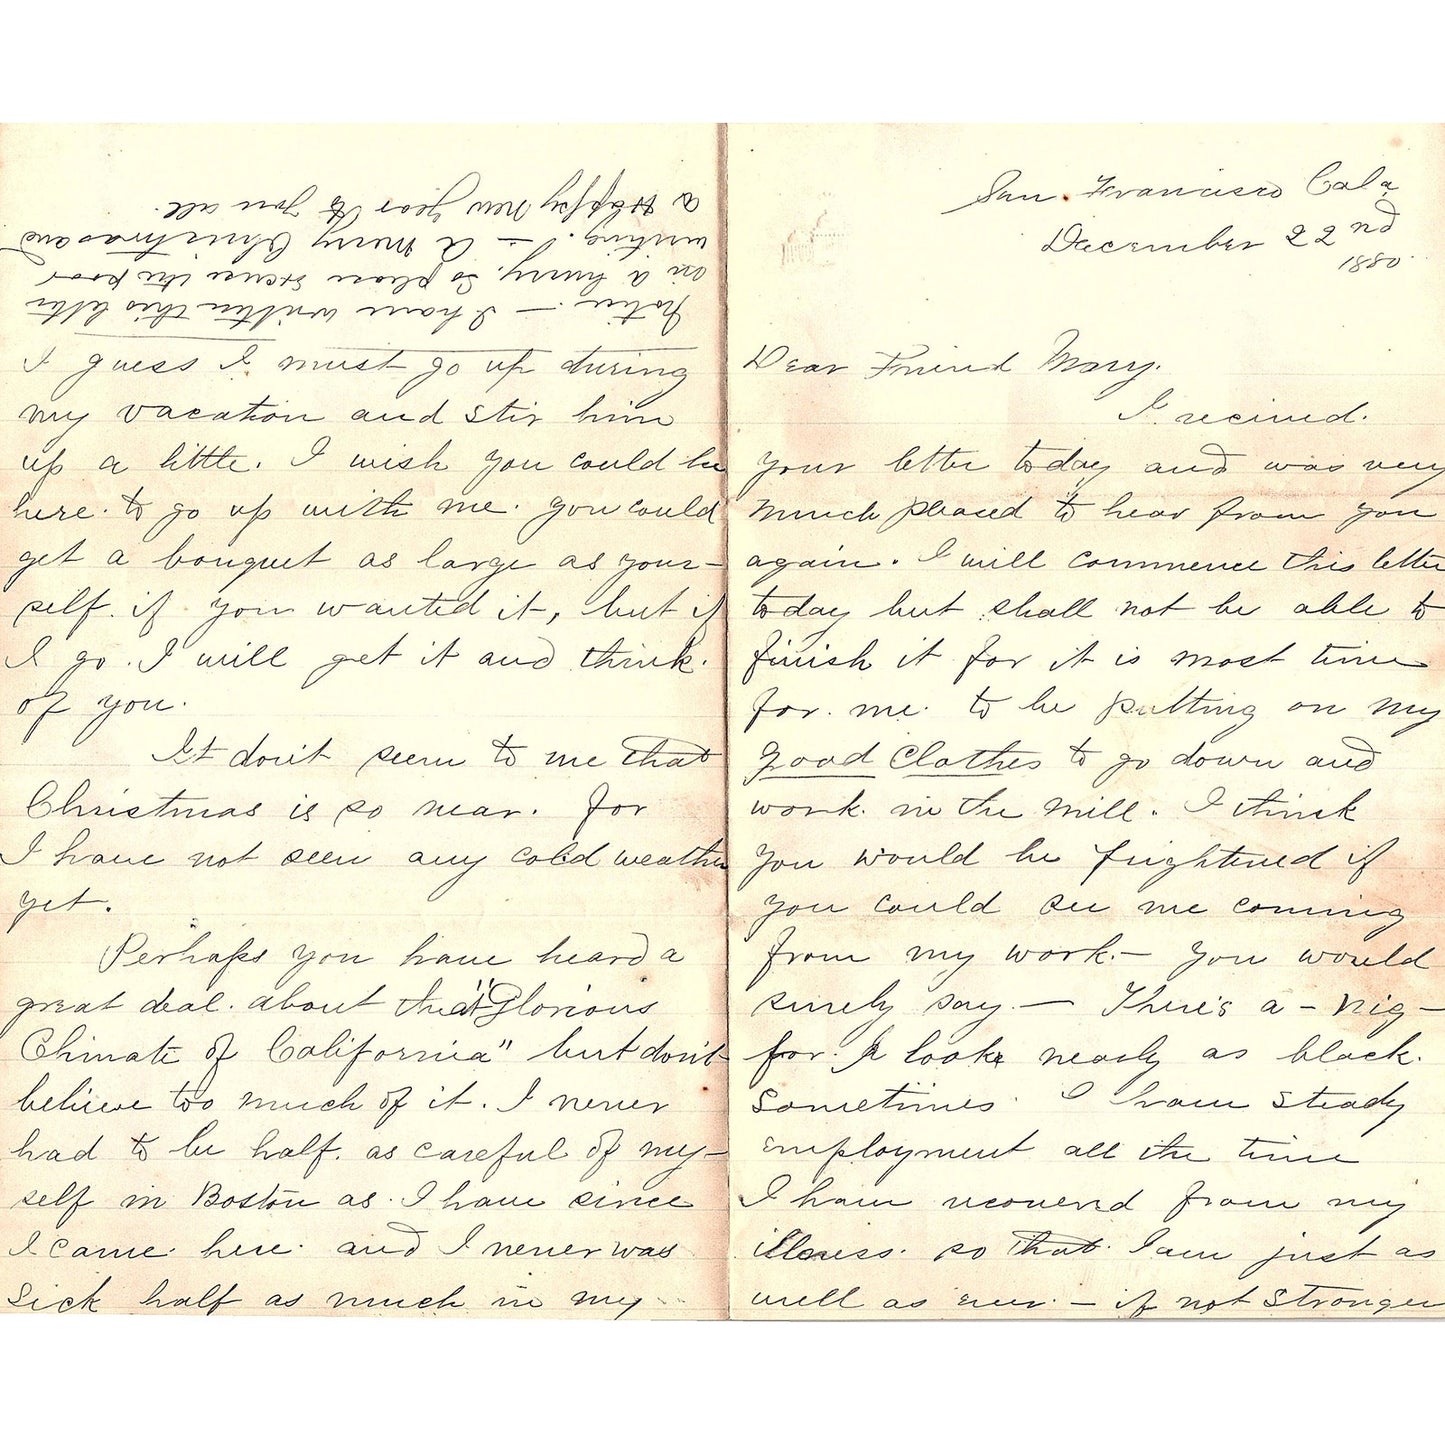 San. Francisco Cala
December 22nd
1880.
Dear Friend Mary.
I. recieved.
your letter today and was very
much pleased to hear from you
again. I will commence this letter
today but shall not be able to
finish it for it is most time
for. me. to be putting on my
good clothes to go down and
work. in the mill. I think
you would be frightened if
you could see me coming
from my work. — you would
surely say. — There's a - nig -
for. I look nearly as black.
Sometimes. I have steady
employment all the time
I have recoverd from my
illness. so that. I am just as
well as ever. - if not stronger
I guess I must go up during
my vacation and stir him
up a little. I wish you could be
here. to go up with me. you could
get a bouquet as large as your-
self. if you wanted it, but if
I go. I will get it and think.
of you.
It don't seem to me that
Christmas is so near. for
I have not seen any cold weather
yet.
Perhaps you have heard a
great deal. about the "Glorious
Climate of California" but don't
believe too much of it. I never
had to be half. as careful of my-
self in Boston as. I have since
I came. here. and I never was
sick half as much in my
Notice. — I have written this letter
in a hurry. So please excuse the poor
writing. — A Merry Christmas and
a Happy New Year to you all.